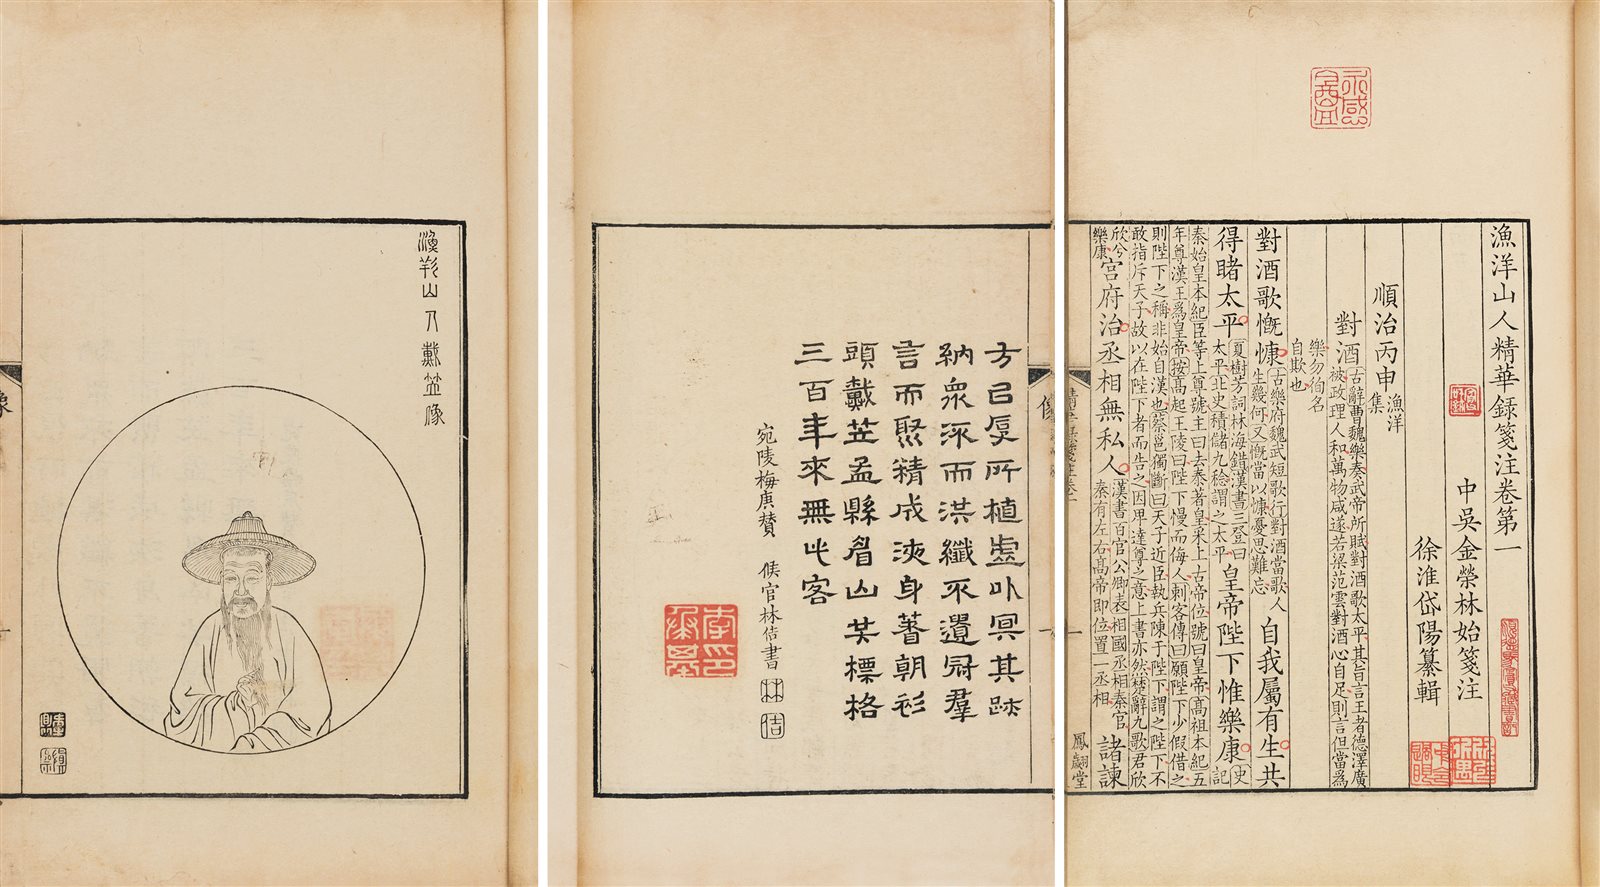 漁洋山人戴笠像
像
方㠯厚所植虛以冥其跡
納眾流而洪纖不遺冠羣
言而聚精成液身著朝衫
頭戴笠孟縣眉山其標格
三百年來無此客
宛陵梅庚贊 侯官林佶書
林
佶
漁洋山人精華錄箋注卷第一
中吳金榮林始箋注
徐淮岱陽纂輯
順治丙申漁洋集
對酒古辭曹魏樂奏武帝所賦對酒歌太平其旨言王者德澤廣
被政理人和萬物咸遂若梁范雲對酒心自足則言但當爲
樂勿徇名
自欺也
對酒歌慨慷古樂府魏武短歌行對酒當歌人生幾何又慨當以慷憂思難忘自我屬有生共
得睹太平夏樹芳詞林海錯漢書三登曰太平北史積儲九稔謂之太平皇帝陛下惟樂康史記
秦始皇本紀臣等上尊號王曰去泰著皇采上古帝位號曰皇帝高祖本紀五
年尊漢王爲皇帝按高起王陵曰陛下慢而侮人刺客傳曰願陛下少假借之
則陛下之稱非始自漢也蔡邕獨斷曰天子近臣執兵陳于陛下謂之陛下不
敢指斥天子故以在陛下者而告之因卑達尊之意上書亦然楚辭九歌君欣
欣兮樂康宮府治丞相無私人漢書百官公卿表相國丞相秦官秦有左右高帝即位置一丞相諸諫
鳳翽堂